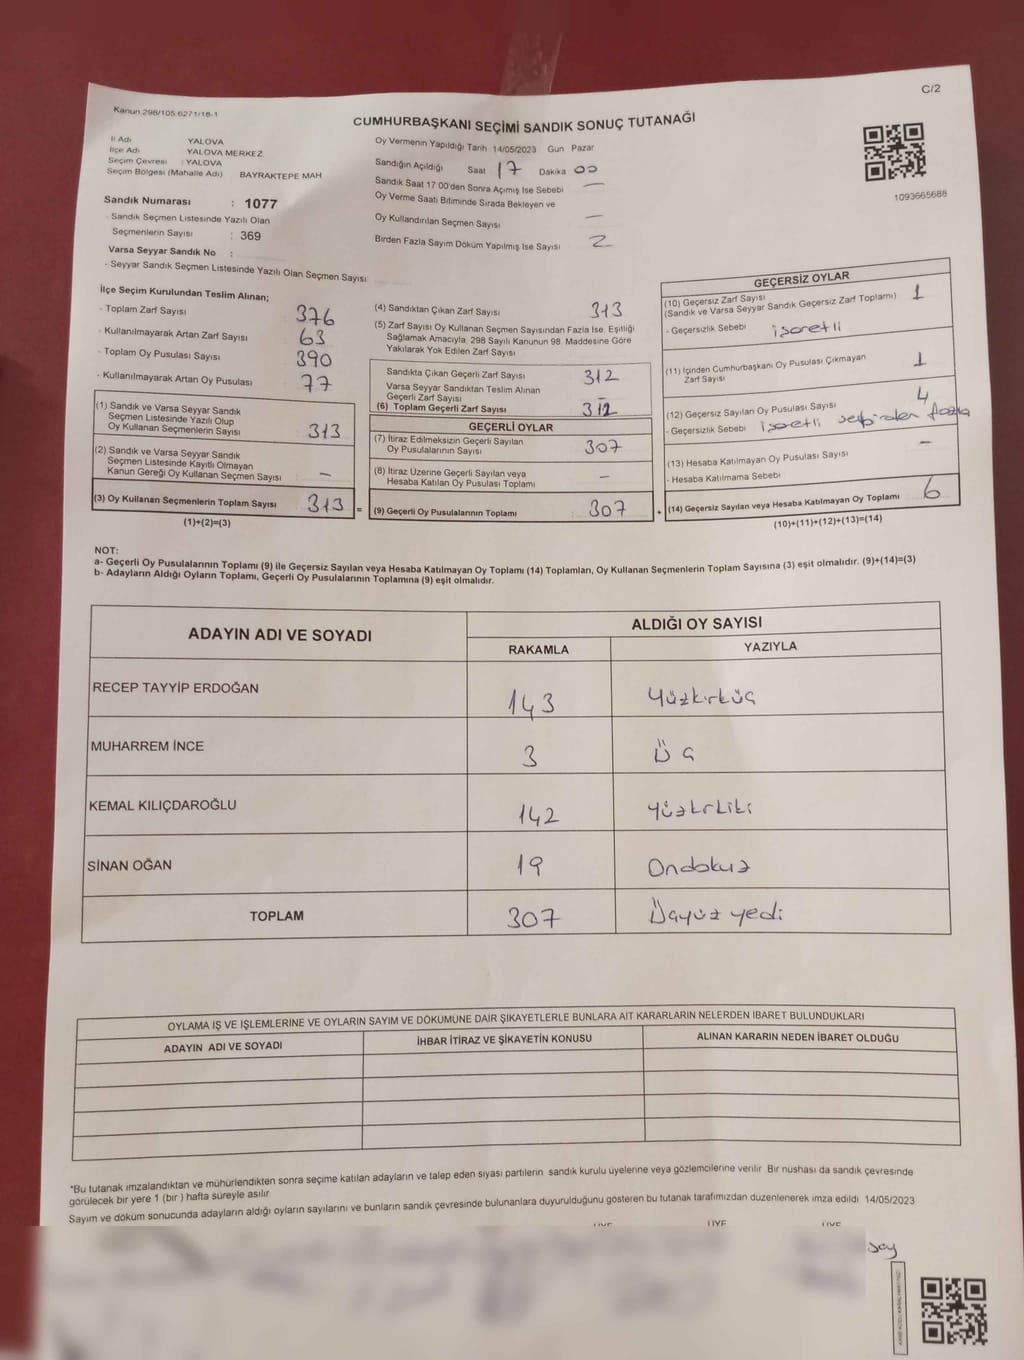 C/2
Kanun 298/105 6271/18-1
CUMHURBAŞKANI SEÇİMİ SANDIK SONUÇ TUTANAĞI
İl Adı YALOVA
İlçe Adı YALOVA MERKEZ
Seçim Çevresi : YALOVA
Seçim Bölgesi (Mahalle Adı) BAYRAKTEPE MAH
Sandık Numarası : 1077
- Sandık Seçmen Listesinde Yazılı Olan
Seçmenlerin Sayısı : 369
Varsa Seyyar Sandık No :
- Seyyar Sandık Seçmen Listesinde Yazılı Olan Seçmen Sayısı
Oy Vermenin Yapıldığı Tarih 14/05/2023 Gün Pazar
Sandığın Açıldığı Saat 17 Dakika 00
Sandık Saat 17.00'den Sonra Açımış İse Sebebi —
Oy Verme Saati Bitiminde Sırada Bekleyen ve
Oy Kullandırılan Seçmen Sayısı —
Birden Fazla Sayım Döküm Yapılmış İse Sayısı 2
1093665688
İlçe Seçim Kurulundan Teslim Alınan;
- Toplam Zarf Sayısı 376
- Kullanılmayarak Artan Zarf Sayısı 63
- Toplam Oy Pusulası Sayısı 390
- Kullanılmayarak Artan Oy Pusulası 77
(1) Sandık ve Varsa Seyyar Sandık
Seçmen Listesinde Yazılı Olup
Oy Kullanan Seçmenlerin Sayısı 313
(2) Sandık ve Varsa Seyyar Sandık
Seçmen Listesinde Kayıtlı Olmayan
Kanun Gereği Oy Kullanan Seçmen Sayısı —
(3) Oy Kullanan Seçmenlerin Toplam Sayısı 313 =
(1)+(2)=(3)
(4) Sandıktan Çıkan Zarf Sayısı 313
(5) Zarf Sayısı Oy Kullanan Seçmen Sayısından Fazla İse, Eşitliği
Sağlamak Amacıyla, 298 Sayılı Kanunun 98. Maddesine Göre
Yakılarak Yok Edilen Zarf Sayısı
Sandıkta Çıkan Geçerli Zarf Sayısı 312
Varsa Seyyar Sandıktan Teslim Alınan
Geçerli Zarf Sayısı —
(6) Toplam Geçerli Zarf Sayısı 312
GEÇERLİ OYLAR
(7) İtiraz Edilmeksizin Geçerli Sayılan
Oy Pusulalarının Sayısı 307
(8) İtiraz Üzerine Geçerli Sayılan veya
Hesaba Katılan Oy Pusulası Toplamı —
(9) Geçerli Oy Pusulalarının Toplamı 307 +
GEÇERSİZ OYLAR
(10) Geçersiz Zarf Sayısı
(Sandık ve Varsa Seyyar Sandık Geçersiz Zarf Toplamı) 1
- Geçersizlik Sebebi işaretli
(11) İçinden Cumhurbaşkanı Oy Pusulası Çıkmayan
Zarf Sayısı 1
(12) Geçersiz Sayılan Oy Pusulası Sayısı 4
- Geçersizlik Sebebi işaretli fazla
(13) Hesaba Katılmayan Oy Pusulası Sayısı —
- Hesaba Katılmama Sebebi
(14) Geçersiz Sayılan veya Hesaba Katılmayan Oy Toplamı 6
(10)+(11)+(12)+(13)=(14)
NOT:
a- Geçerli Oy Pusulalarının Toplamı (9) ile Geçersiz Sayılan veya Hesaba Katılmayan Oy Toplamı (14) Toplamları, Oy Kullanan Seçmenlerin Toplam Sayısına (3) eşit olmalıdır. (9)+(14)=(3)
b- Adayların Aldığı Oyların Toplamı, Geçerli Oy Pusulalarının Toplamına (9) eşit olmalıdır.
ADAYIN ADI VE SOYADI ALDIĞI OY SAYISI
RAKAMLA YAZIYLA
RECEP TAYYİP ERDOĞAN 143 Yüzkırküç
MUHARREM İNCE 3 Üç
KEMAL KILIÇDAROĞLU 142 Yüzkırkiki
SİNAN OĞAN 19 Ondokuz
TOPLAM 307 Üçyüz yedi
OYLAMA İŞ VE İŞLEMLERİNE VE OYLARIN SAYIM VE DÖKÜMÜNE DAİR ŞİKAYETLERLE BUNLARA AİT KARARLARIN NELERDEN İBARET BULUNDUKLARI
ADAYIN ADI VE SOYADI İHBAR İTİRAZ VE ŞİKAYETİN KONUSU ALINAN KARARIN NEDEN İBARET OLDUĞU
*Bu tutanak imzalandıktan ve mühürlendikten sonra seçime katılan adayların ve talep eden siyasi partilerin sandık kurulu üyelerine veya gözlemcilerine verilir. Bir nüshası da sandık çevresinde
görülecek bir yere 1 (bir) hafta süreyle asılır
Sayım ve döküm sonucunda adayların aldığı oyların sayılarını ve bunların sandık çevresinde bulunanlara duyurulduğunu gösteren bu tutanak tarafımızdan düzenlenerek imza edildi 14/05/2023
ÜYE ÜYE ÜYE